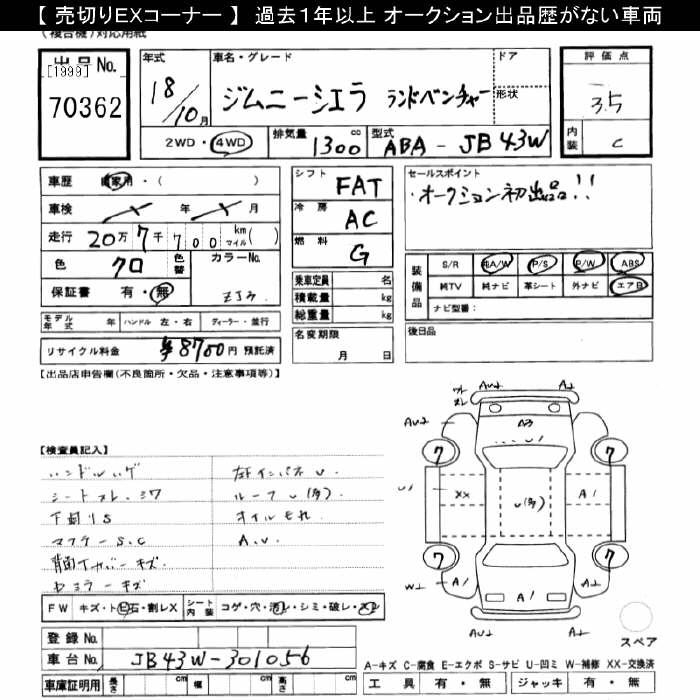 【 売切りEXコーナー 】 過去1年以上 オークション出品歴がない車両
(複合機)対応用紙
出品No.
[1999]
70362
年式
18/10月
車名・グレード
ジムニーシエラ ランドベンチャー
ドア
形状
2WD・4WD
排気量 1300 cc
型式 ABA - JB43W
評価点
3.5
内装 C
車歴 自家用・( )
車検 年 月
走行 20万7千700 km マイル( )
色 クロ 色替 カラーNo. ZJ3
保証書 有・無
モデル年式 年 ハンドル 左・右 ディーラー・並行
リサイクル料金 ¥8700円 預託済
シフト FAT
冷房 AC
燃料 G
乗車定員 名
積載量 kg
総重量 kg
名変期限
月 日
セールスポイント
・オークション初出品!!
装備品
S/R 純A/W P/S P/W ABS
純TV 純ナビ 革シート 外ナビ エアB
ナビ型番:
後日品
【出品店申告欄(不良箇所・欠品・注意事項等)】
【検査員記入】
ハンドルハゲ
シートスレ.シワ
下廻りS
マフラーS.C
背面カバーキズ
左ミラーキズ
ルーフU(多)
オイルモレ
A.U.
AU2
A2
AU2
A3
U
7
7
U1
XX
U(多)
A1
7
7
W2
A1
A1
A1
AU2
A2
スペア
FW キズ・ト・ヒ石・割レX シート内装 コゲ・穴・汚レ・シミ・破レ・スレ
登録No.
車台No. JB43W-301056
車庫証明用 長さ cm 幅 cm 高さ cm
A-キズ C-腐食 E-エクボ S-サビ U-凹ミ W-補修 XX-交換済
工具 有・無 ジャッキ 有・無